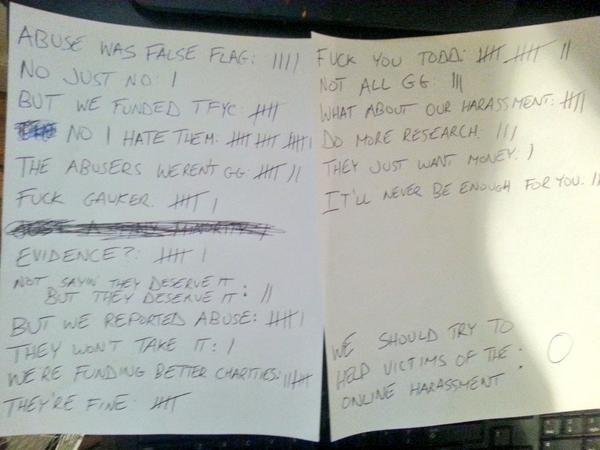 ABUSE WAS FALSE FLAG: ||||
NO JUST NO: |
BUT WE FUNDED TFYC: 卌
NO I HATE THEM: 卌 卌 卌 |
THE ABUSERS WEREN'T GG: 卌 ||
FUCK GAWKER: 卌 |
EVIDENCE?: 卌 |
NOT SAYIN' THEY DESERVE IT
BUT THEY DESERVE IT: ||
BUT WE REPORTED ABUSE: 卌 |
THEY WON'T TAKE IT: |
WE'RE FUNDING BETTER CHARITIES: ||| 卌
THEY'RE FINE: 卌
FUCK YOU TODD: 卌 卌 ||
NOT ALL GG: |||
WHAT ABOUT OUR HARASSMENT: 卌 ||
DO MORE RESEARCH: |||
THEY JUST WANT MONEY: |
IT'LL NEVER BE ENOUGH FOR YOU: ||
WE SHOULD TRY TO
HELP VICTIMS OF THE : 0
ONLINE HARASSMENT